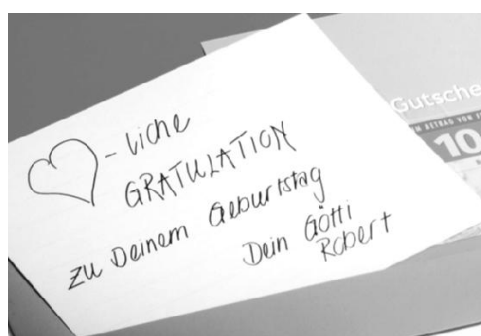 ♡-liche
GRATULATION
zu Deinem Geburtstag
Dein Götti
Robert
Gutsche
10